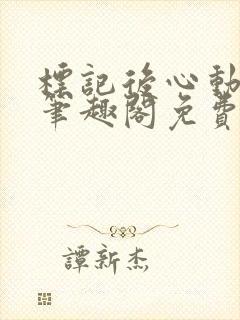 標記後心動
筆趣閣免費
譚新杰